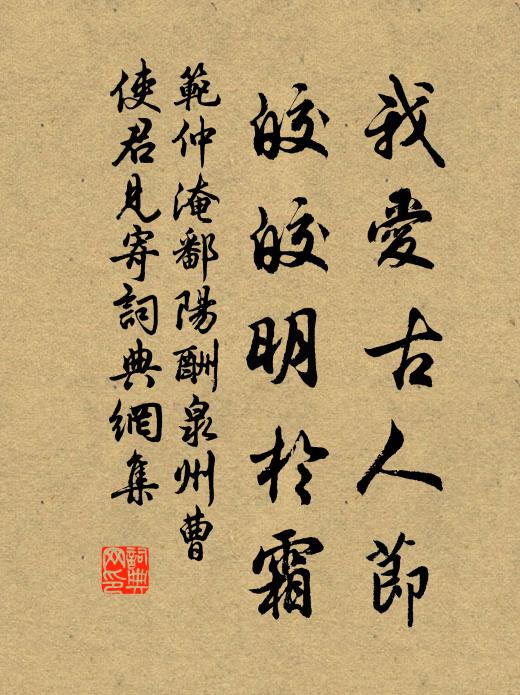 我愛古人節
皎皎明於霜
範仲淹鄱陽酬泉州曹
使君見寄詞典網集
詞典
网印